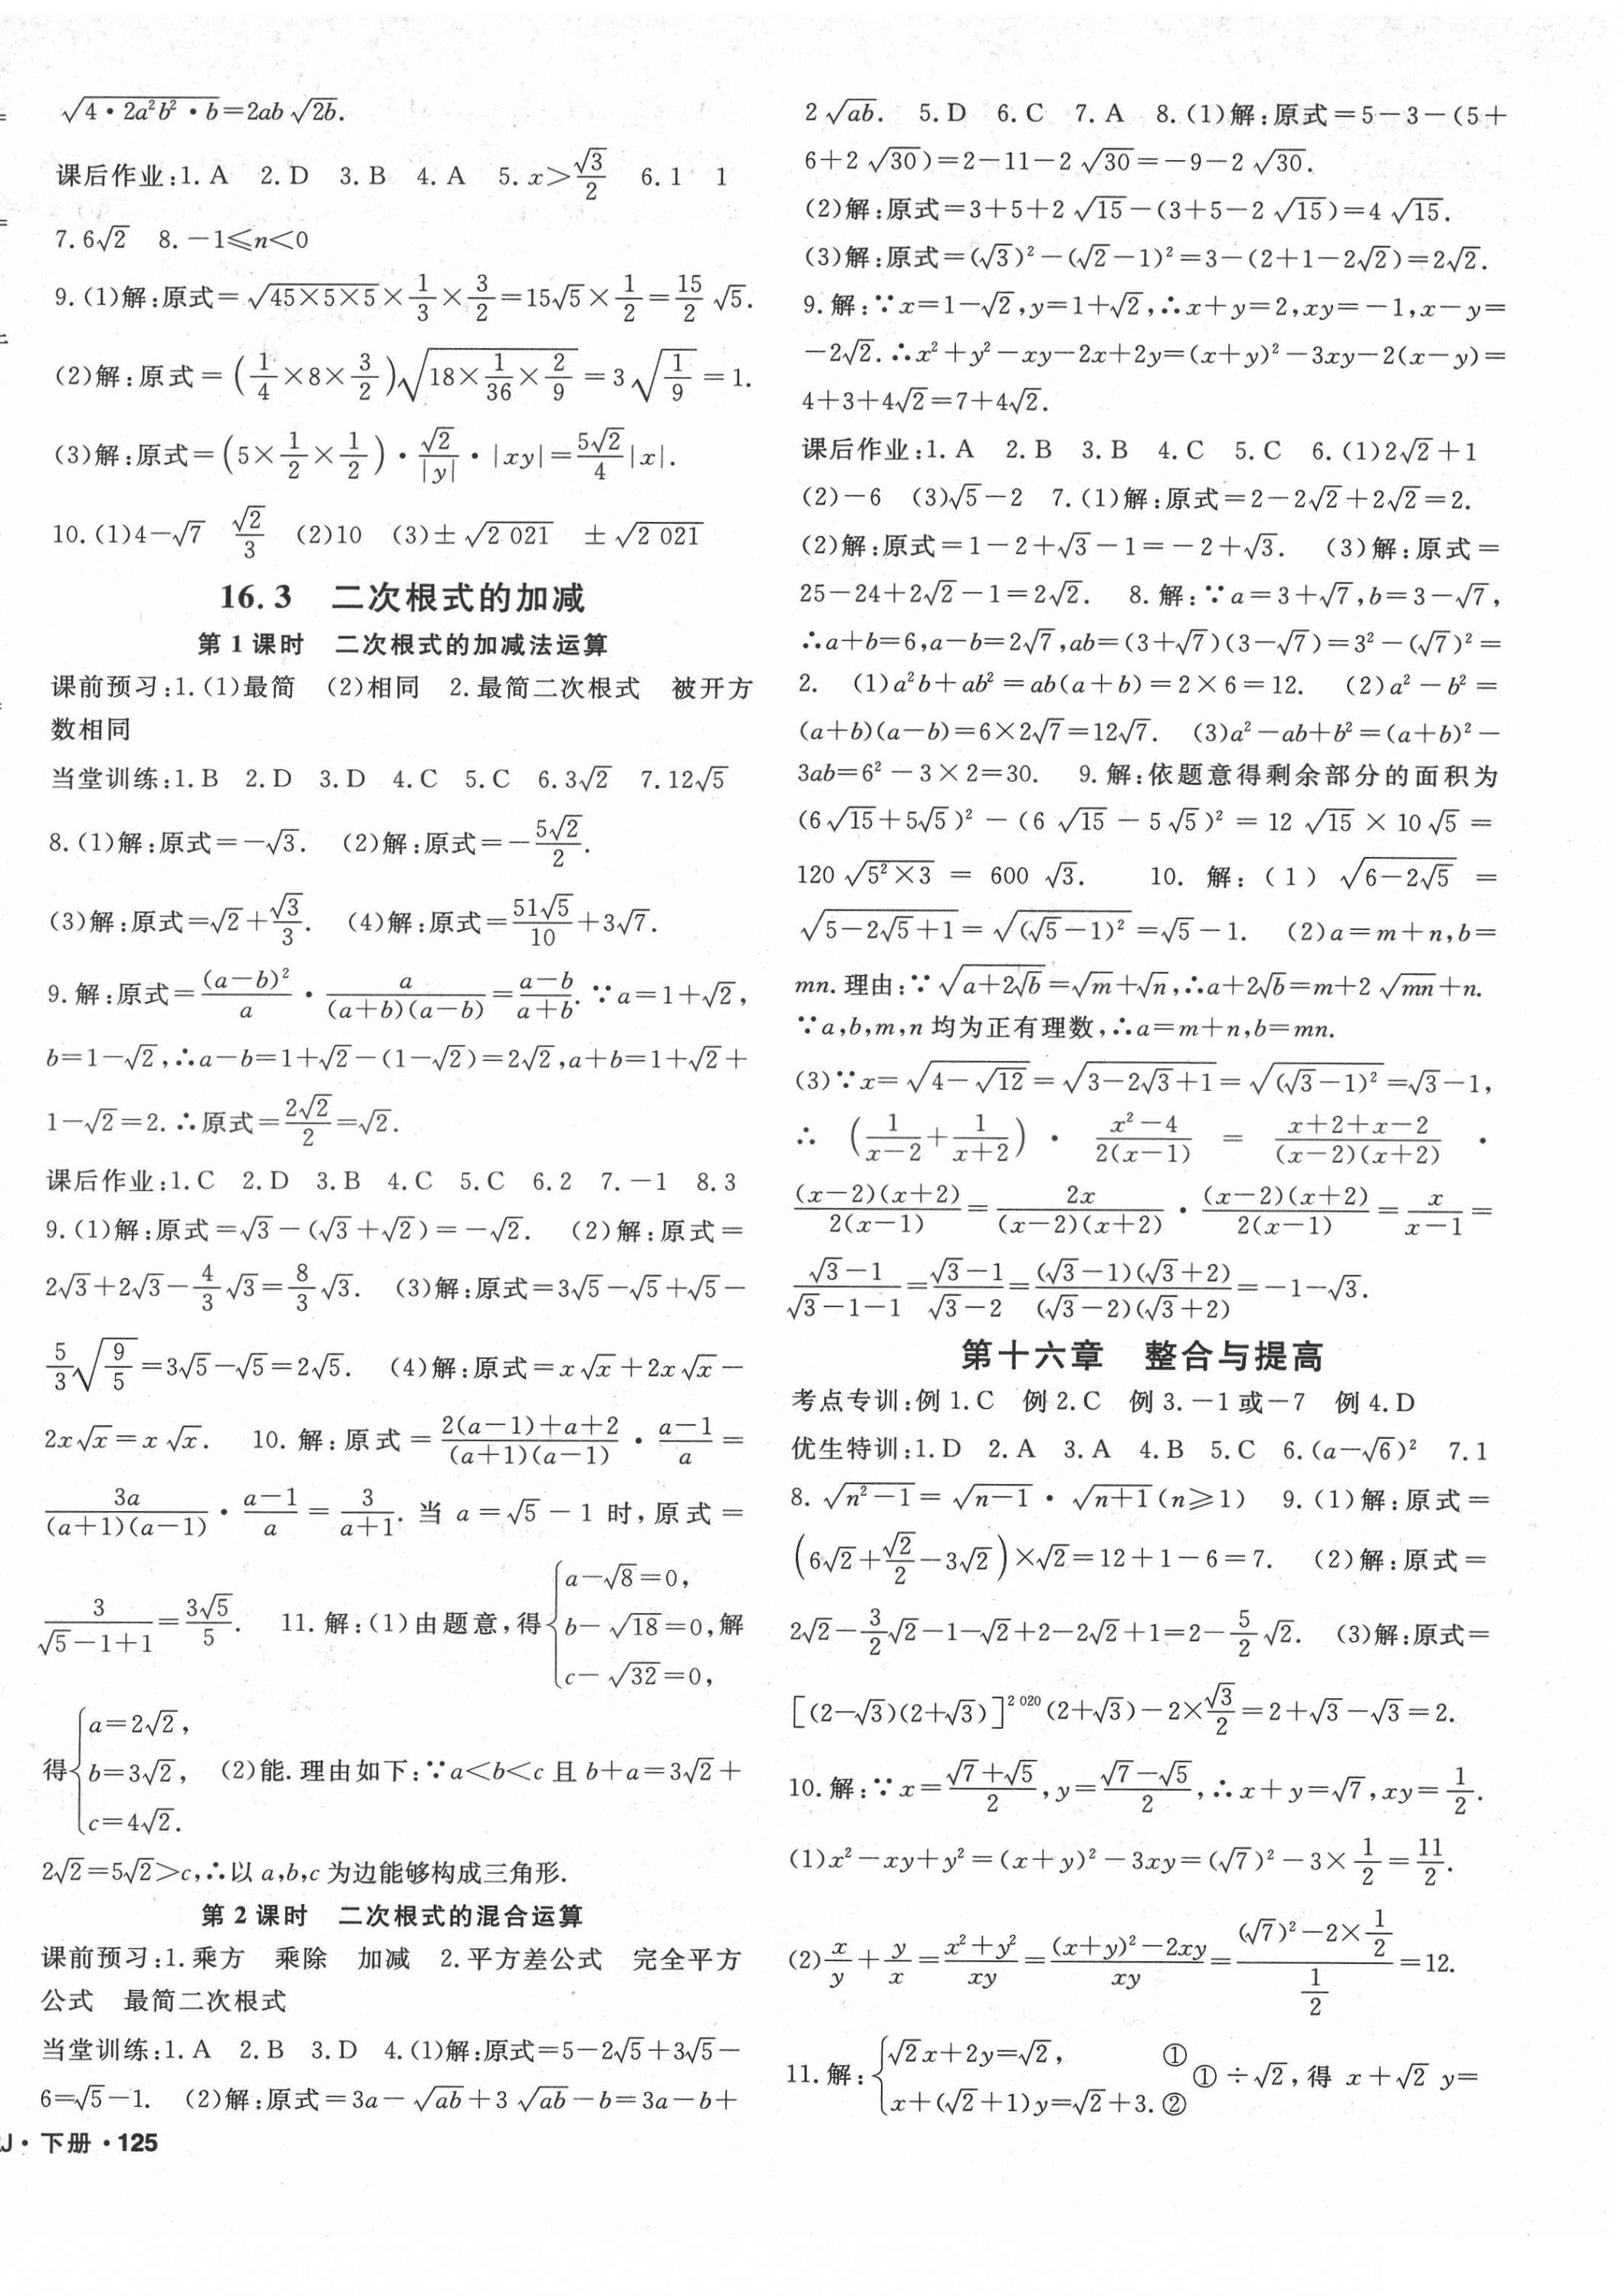 √(4·2a²b²·b)=2ab√(2b).
课后作业:1. A 2. D 3. B 4. A 5. x>√3/2 6. 1 1
7. 6√2 8. －1≤n<0
9. (1)解:原式=√(45×5×5)×1/3×3/2=15√5×1/2=15/2 √5.
(2)解:原式=(1/4×8×3/2)√(18×1/36×2/9)=3√(1/9)=1.
(3)解:原式=(5×1/2×1/2)·√2/|y|·|xy|=5√2/4|x|.
10. (1)4－√7 √2/3 (2)10 (3)±√2 021 ±√2 021
16. 3 二次根式的加减
第 1 课时 二次根式的加减法运算
课前预习:1. (1)最简 (2)相同 2. 最简二次根式 被开方
数相同
当堂训练:1. B 2. D 3. D 4. C 5. C 6. 3√2 7. 12√5
8. (1)解:原式=－√3. (2)解:原式=－5√2/2.
(3)解:原式=√2+√3/3. (4)解:原式=51√5/10+3√7.
9. 解:原式=(a－b)²/a·a/((a+b)(a－b))=(a－b)/(a+b). ∵a=1+√2,
b=1－√2,∴a－b=1+√2－(1－√2)=2√2,a+b=1+√2+
1－√2=2. ∴原式=2√2/2=√2.
课后作业:1. C 2. D 3. B 4. C 5. C 6. 2 7. －1 8. 3
9. (1)解:原式=√3－(√3+√2)=－√2. (2)解:原式=
2√3+2√3－4/3√3=8/3√3. (3)解:原式=3√5－√5+√5－
5/3√(9/5)=3√5－√5=2√5. (4)解:原式=x√x+2x√x－
2x√x=x√x. 10. 解:原式=(2(a－1)+a+2)/((a+1)(a－1))·(a－1)/a=
3a/((a+1)(a－1))·(a－1)/a=3/(a+1). 当 a=√5－1 时,原式=
3/(√5－1+1)=3√5/5. 11. 解:(1)由题意,得{a－√8=0, b－√18=0, c－√32=0, 解
得{a=2√2, b=3√2, c=4√2. (2)能. 理由如下:∵a<b<c 且 b+a=3√2+
2√2=5√2>c,∴以 a,b,c 为边能够构成三角形.
第 2 课时 二次根式的混合运算
课前预习:1. 乘方 乘除 加减 2. 平方差公式 完全平方
公式 最简二次根式
当堂训练:1. A 2. B 3. D 4. (1)解:原式=5－2√5+3√5－
6=√5－1. (2)解:原式=3a－√(ab)+3√(ab)－b=3a－b+
J·下册·125
2√(ab). 5. D 6. C 7. A 8. (1)解:原式=5－3－(5+
6+2√30)=2－11－2√30=－9－2√30.
(2)解:原式=3+5+2√15－(3+5－2√15)=4√15.
(3)解:原式=(√3)²－(√2－1)²=3－(2+1－2√2)=2√2.
9. 解:∵x=1－√2,y=1+√2,∴x+y=2,xy=－1,x－y=
－2√2. ∴x²+y²－xy－2x+2y=(x+y)²－3xy－2(x－y)=
4+3+4√2=7+4√2.
课后作业:1. A 2. B 3. B 4. C 5. C 6. (1)2√2+1
(2)－6 (3)√5－2 7. (1)解:原式=2－2√2+2√2=2.
(2)解:原式=1－2+√3－1=－2+√3. (3)解:原式=
25－24+2√2－1=2√2. 8. 解:∵a=3+√7,b=3－√7,
∴a+b=6,a－b=2√7,ab=(3+√7)(3－√7)=3²－(√7)²=
2. (1)a²b+ab²=ab(a+b)=2×6=12. (2)a²－b²=
(a+b)(a－b)=6×2√7=12√7. (3)a²－ab+b²=(a+b)²－
3ab=6²－3×2=30. 9. 解:依题意得剩余部分的面积为
(6√15+5√5)²－(6√15－5√5)²=12√15×10√5=
120√(5²×3)=600√3. 10. 解:(1)√(6－2√5)=
√(5－2√5+1)=√((√5－1)²)=√5－1. (2)a=m+n,b=
mn. 理由:∵√(a+2√b)=√m+√n,∴a+2√b=m+2√(mn)+n.
∵a,b,m,n 均为正有理数,∴a=m+n,b=mn.
(3)∵x=√(4－√12)=√(3－2√3+1)=√((√3－1)²)=√3－1,
∴(1/(x－2)+1/(x+2))·(x²－4)/(2(x－1))=(x+2+x－2)/((x－2)(x+2))·
(x－2)(x+2)/(2(x－1))=2x/((x－2)(x+2))·(x－2)(x+2)/(2(x－1))=x/(x－1)=
(√3－1)/(√3－1－1)=(√3－1)/(√3－2)=(√3－1)(√3+2)/((√3－2)(√3+2))=－1－√3.
第十六章 整合与提高
考点专训:例 1. C 例 2. C 例 3. －1 或－7 例 4. D
优生特训:1. D 2. A 3. A 4. B 5. C 6. (a－√6)² 7. 1
8. √(n²－1)=√(n－1)·√(n+1)(n≥1) 9. (1)解:原式=
(6√2+√2/2－3√2)×√2=12+1－6=7. (2)解:原式=
2√2－3/2√2－1－√2+2－2√2+1=2－5/2√2. (3)解:原式=
[(2－√3)(2+√3)]^2 020(2+√3)－2×√3/2=2+√3－√3=2.
10. 解:∵x=(√7+√5)/2,y=(√7－√5)/2,∴x+y=√7,xy=1/2.
(1)x²－xy+y²=(x+y)²－3xy=(√7)²－3×1/2=11/2.
(2)x/y+y/x=(x²+y²)/xy=((x+y)²－2xy)/xy=((√7)²－2×1/2)/(1/2)=12.
11. 解:{√2x+2y=√2, ① x+(√2+1)y=√2+3. ② ①÷√2,得 x+√2 y=